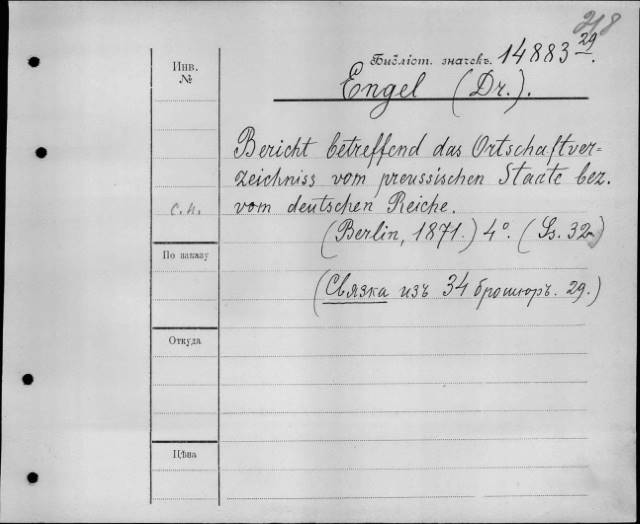 218
Библіот. значекъ. 14883 29.
Инв.
№
Engel (Dr.).
Bericht betreffend das Ortschaftver=
zeichniss vom preussischen Staate bez.
с.н. vom deutschen Reiche.
(Berlin, 1871.) 4°. (Ss. 32)
По заказу
(Связка изъ 34 брошюръ. 29.)
Откуда
Цѣна